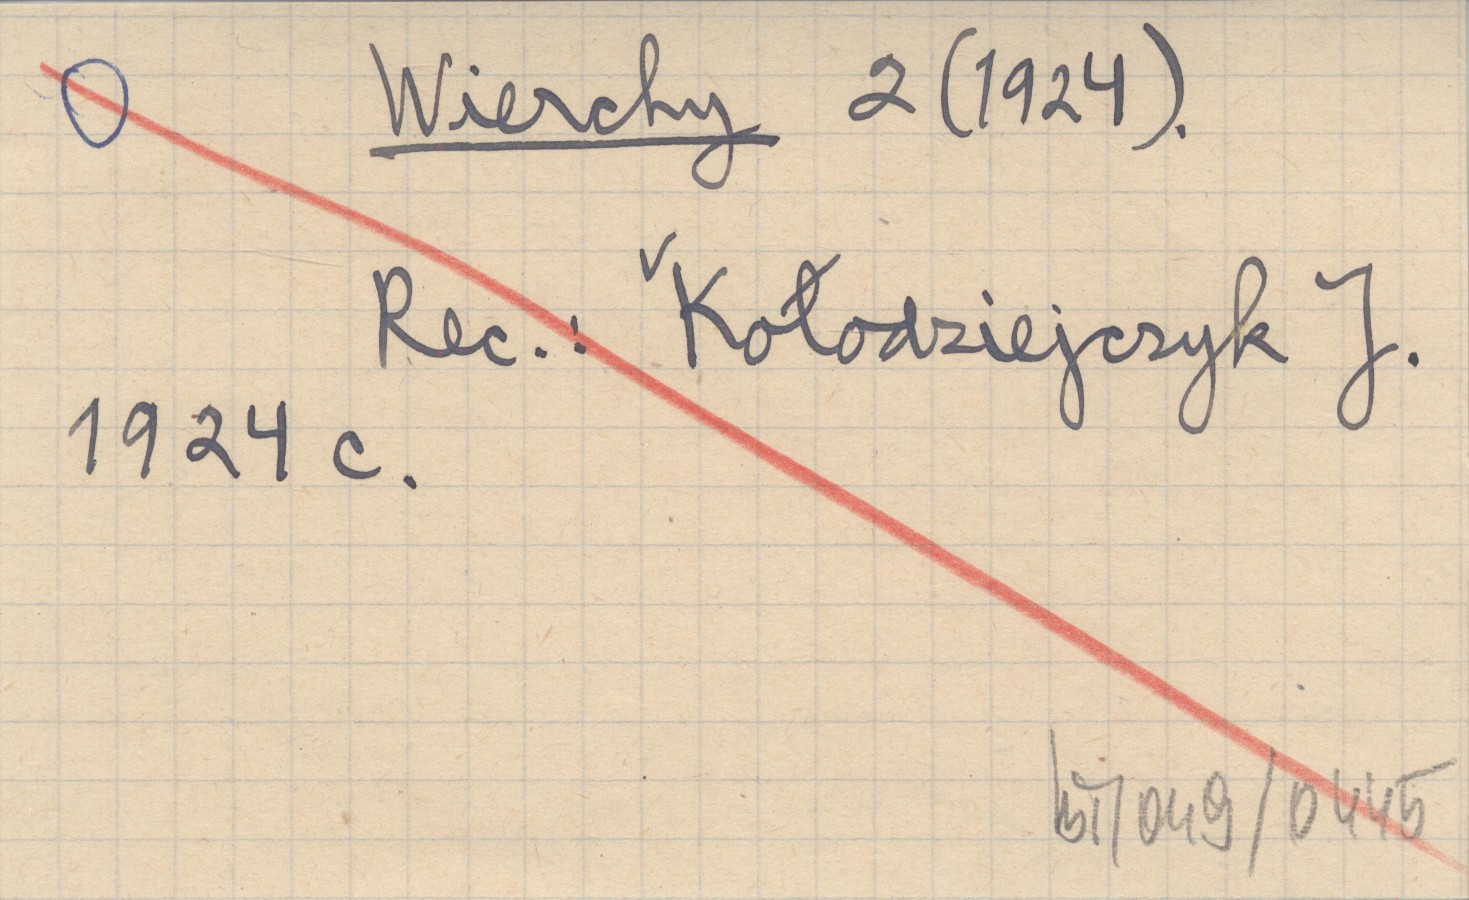 Wierchy 2 (1924).
Rec.: Kołodziejczyk J.
1924 c.
/049/0445